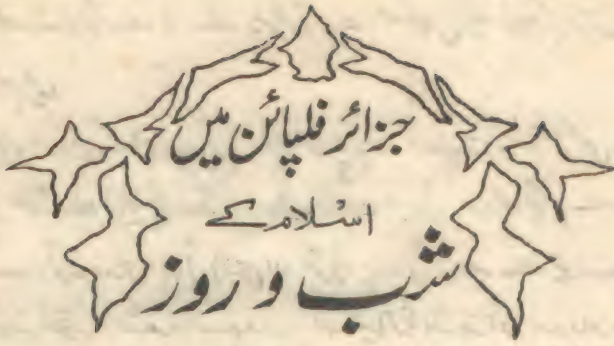 جزائر فلپائن میں
اسلام کے
شب و روز